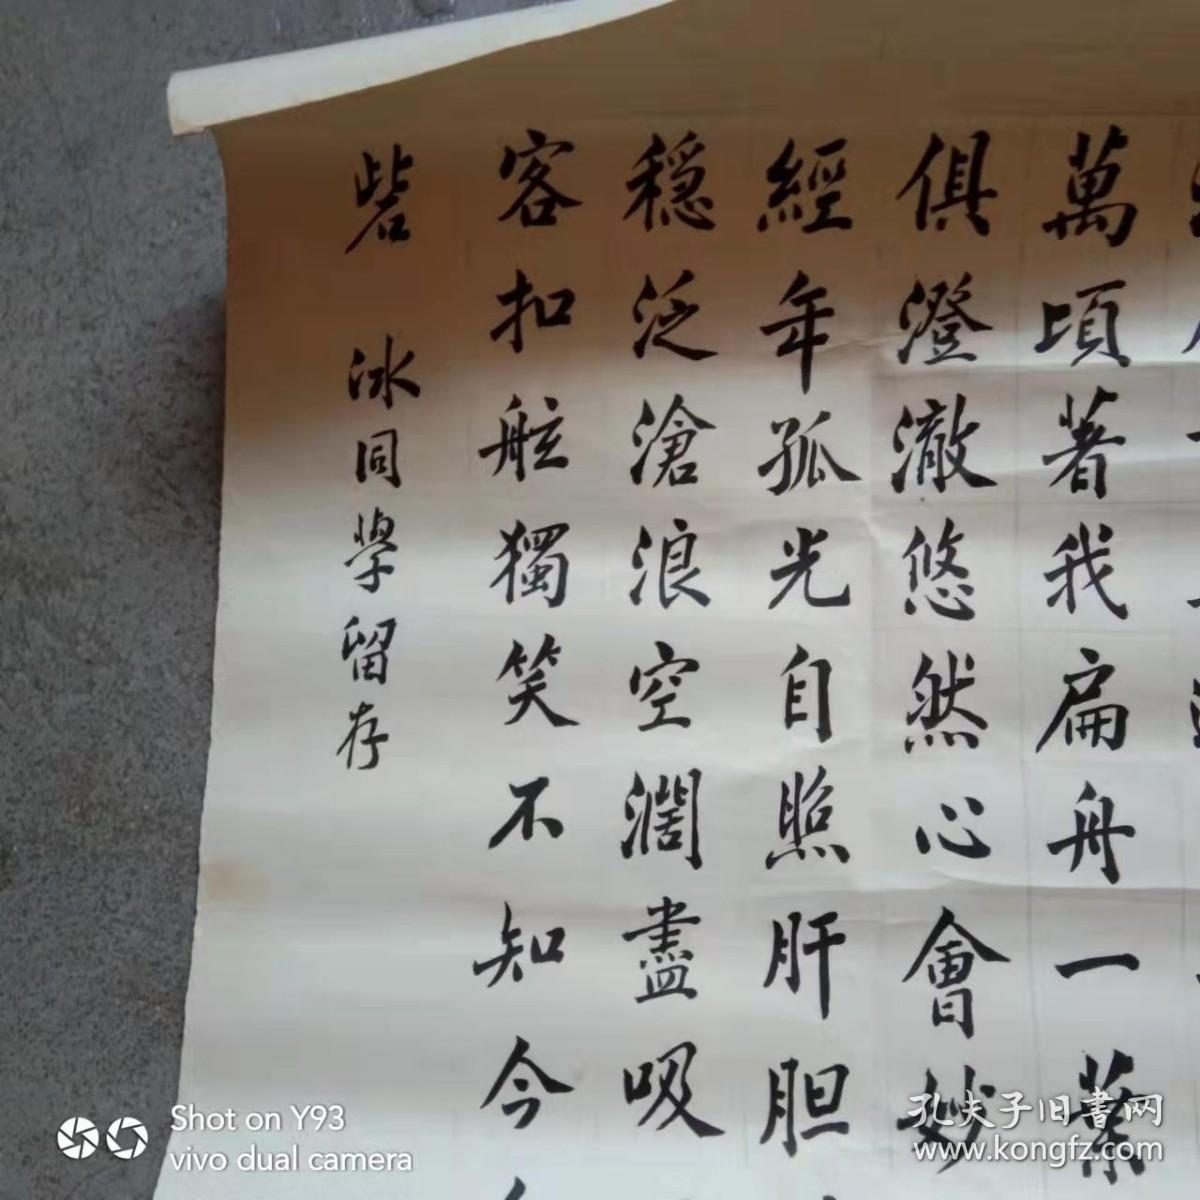 萬頃著我扁舟一葉
俱澄澈悠然心會妙
經年孤光自照肝胆
穩泛滄浪空濶盡吸
客扣舷獨笑不知今
砦 冰同學留存
孔夫子旧書网
www.kongfz.com
Shot on Y93
vivo dual camera